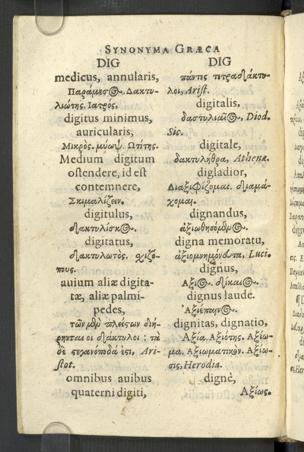 SYNONYMA GRÆCA
DIG
medicus, annularis,
Παράμεσος. Δακτυ-
λιώτης. Ἰατρός.
digitus minimus,
auricularis,
Μικρὸς. μύωψ. Ὠτίτης.
Medium digitum
ostendere, id est
contemnere,
Σκιμαλίζειν.
digitulus,
δακτυλίσκος.
digitatus,
δακτυλωτὸς. σχιζό-
πους.
auium aliæ digita-
tæ, aliæ palmi-
pedes,
τῶν μὲν πλείστων διῄ-
ρηνται οἱ δάκτυλοι: τὰ
δὲ στεγανόποδά ἐστι, Ari-
stot.
omnibus auibus
quaterni digiti,
DIG
πάντες τετραδάκτυ-
λοι, Arist.
digitalis,
Diod.
Sic.
digitale,
δακτυλήθρα, Athenæ.
digladior,
Διαξιφίζομαι. διαμά-
χομαι.
dignandus,
ἀξιωθησόμενος.
digna memoratu,
ἀξιομνημόνευτα, Luci.
dignus,
Ἄξιος. δίκαιος.
dignus laude.
Ἀξιέπαινος.
dignitas, dignatio,
Ἀξία. Ἀξιότης. Ἀξίω-
μα. Ἀξιωματικόν. Ἀξίω-
σις, Herodia.
dignè,
Ἀξίως.